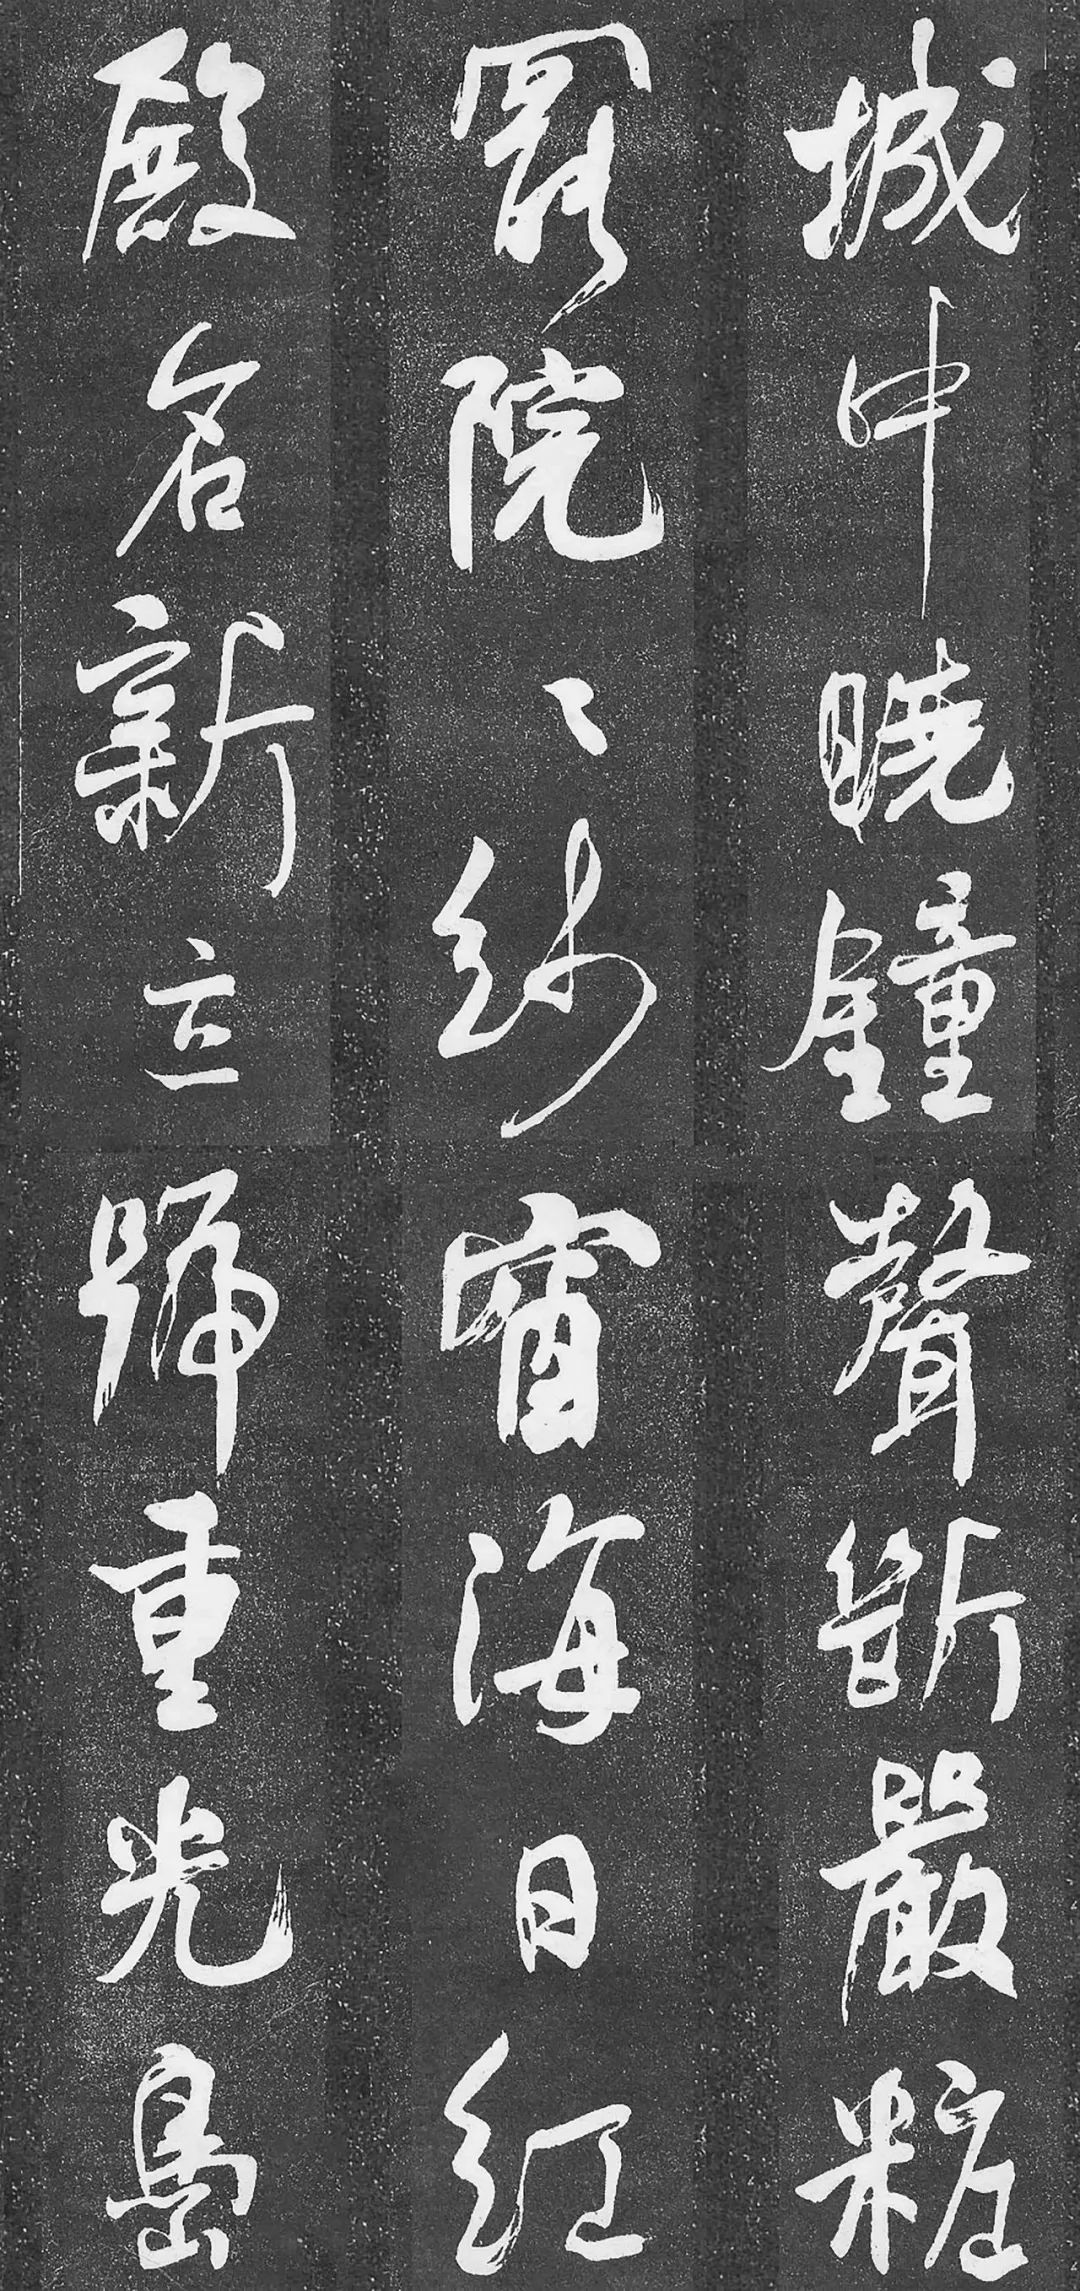 城中曉鐘聲斷嚴粧
罷院〻紗窗海日紅
殿名新立號重光島